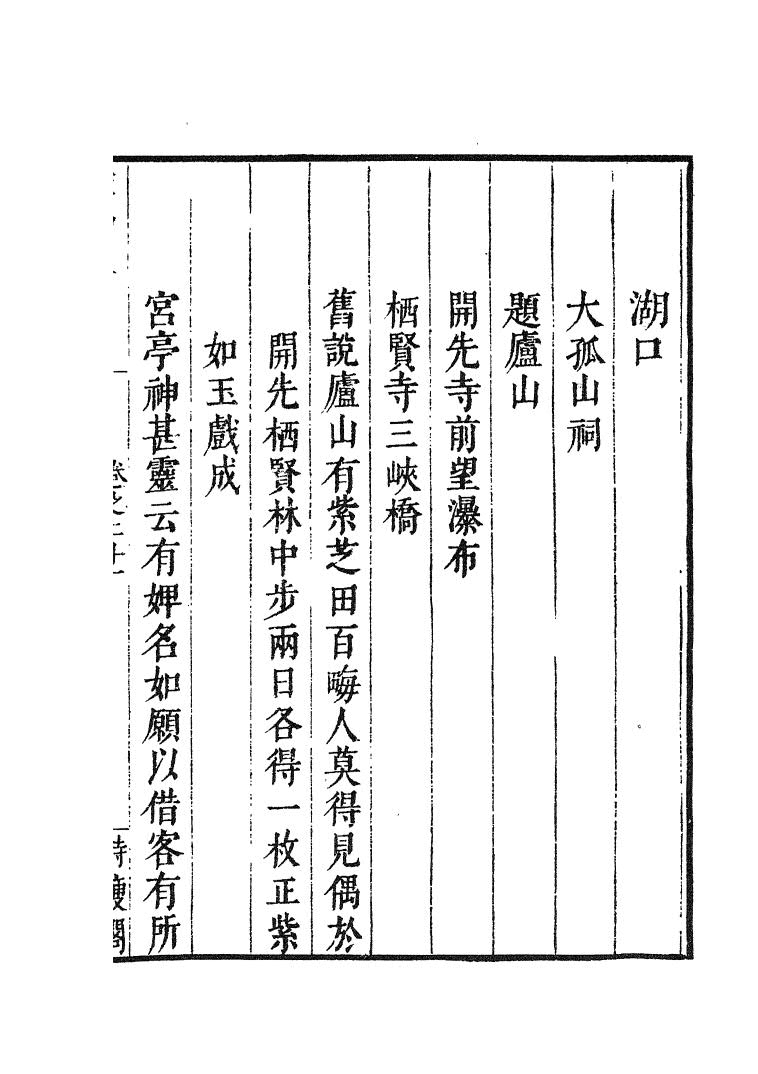 湖口
大孤山祠
題廬山
開先寺前望瀑布
栖賢寺三峽橋
舊說廬山有紫芝田百畮人莫得見偶於
開先栖賢林中步兩日各得一枚正紫
如玉戲成
宮亭神甚靈云有婢名如願以借客有所
卷之二十一
詩瘦閣